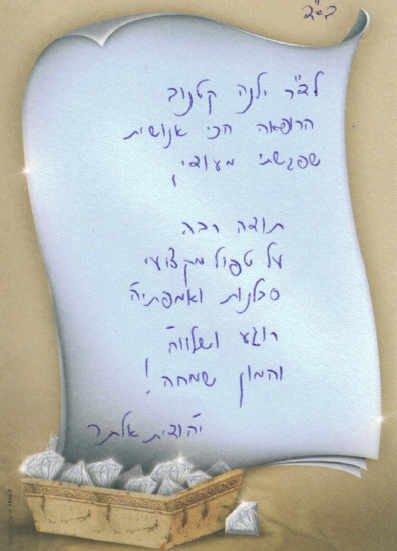 בס"ד
לד"ר ילנה קטנוב
הרופאה הכי אנושית
שפגשתי מעודי,
תודה רבה
על טפול מקצועי
סבלנות ואמפתיה
רוגע ושלווה
והמון שמחה!
יהודית אלתר